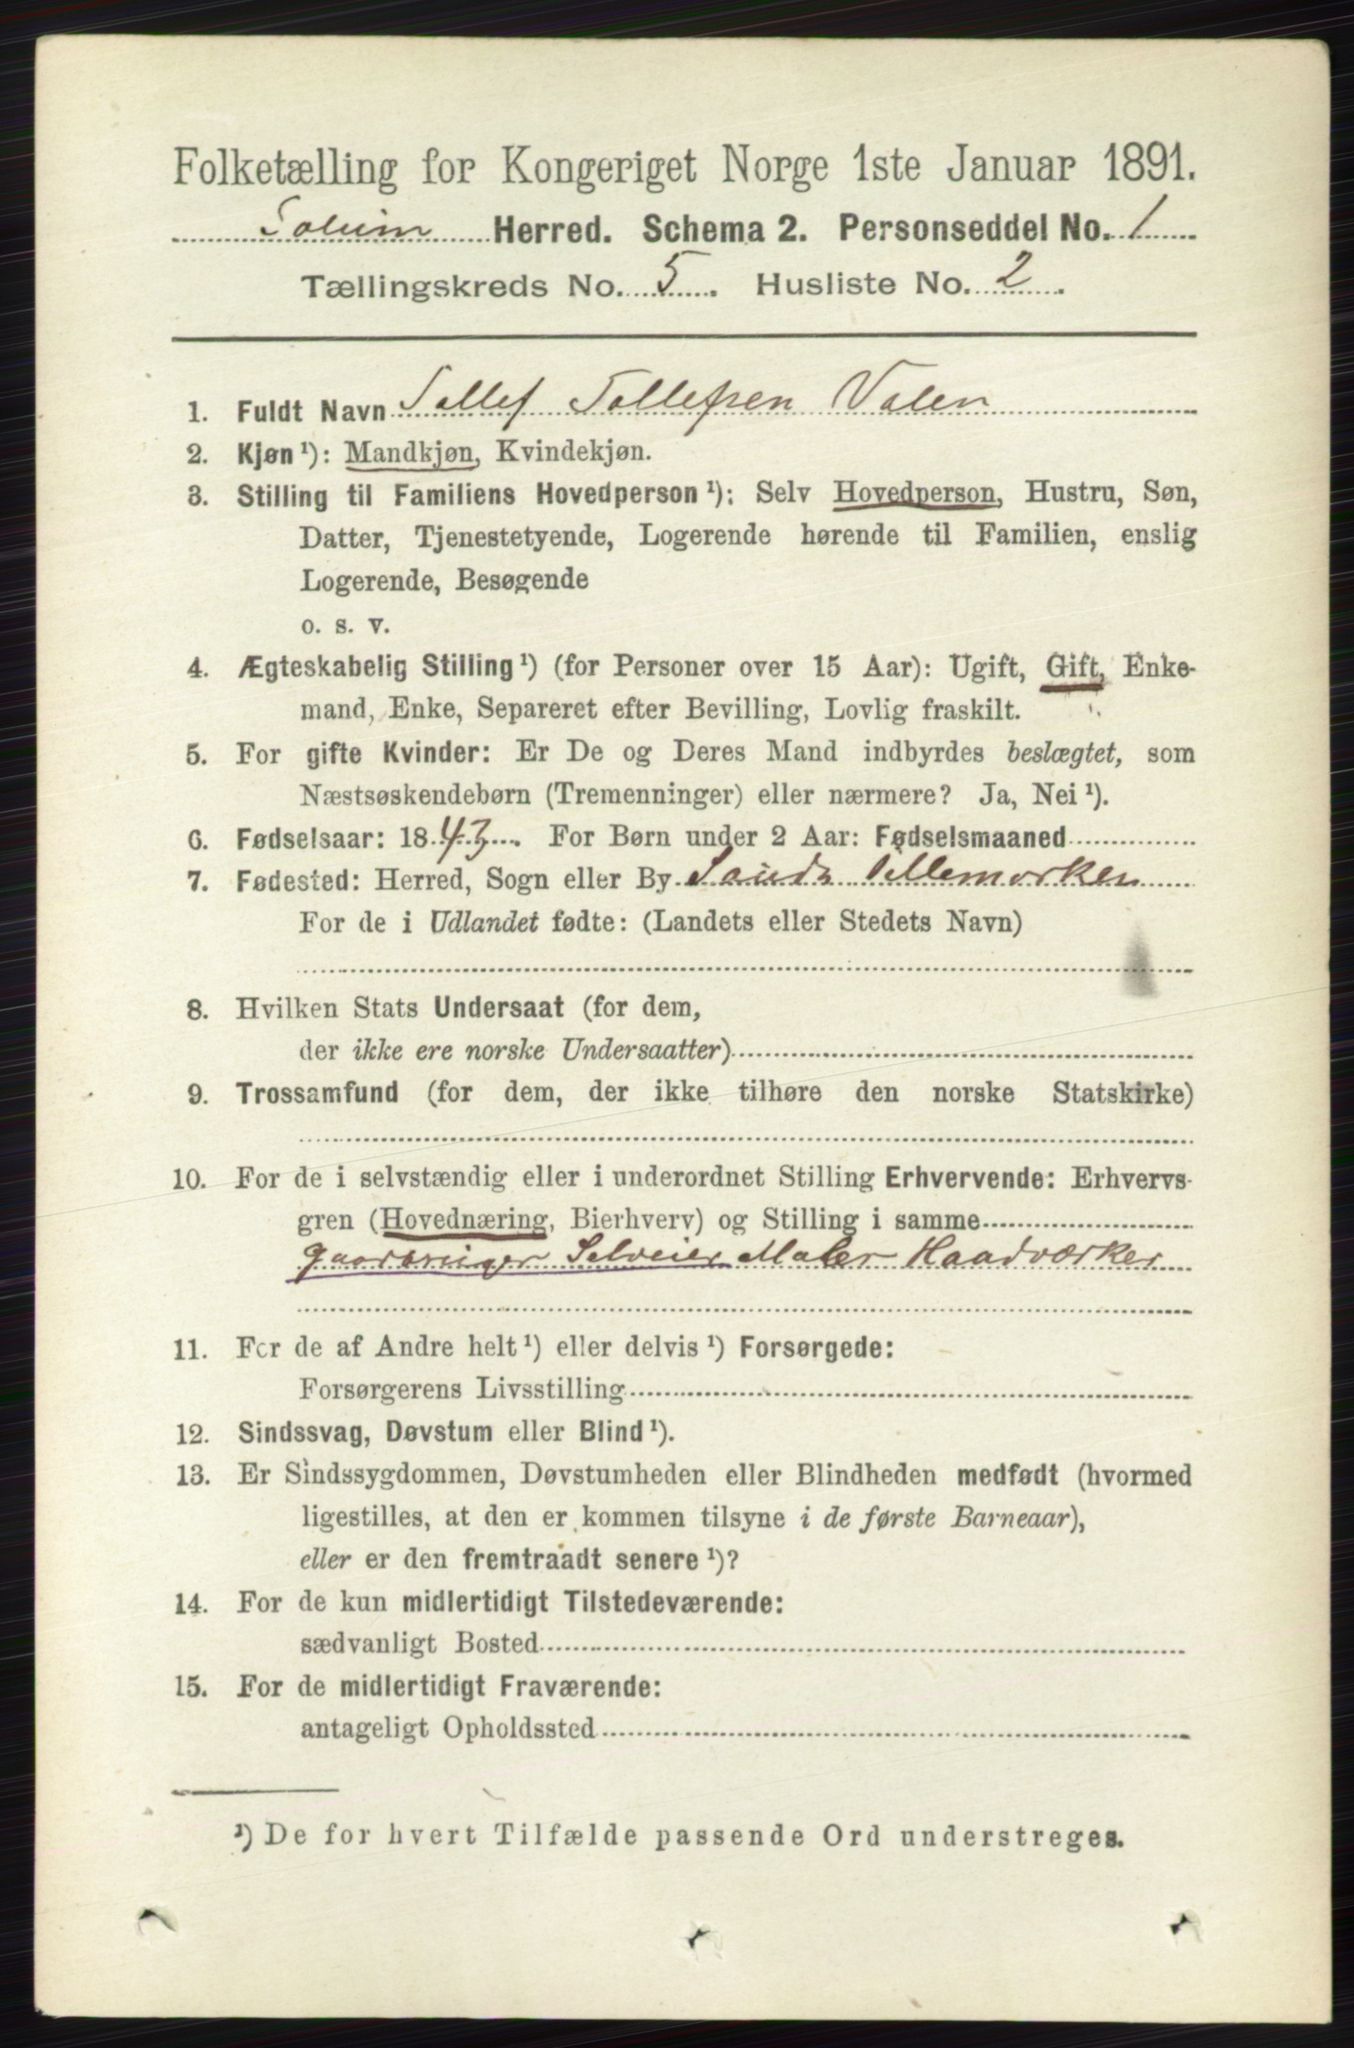 Folketælling for Kongeriget Norge 1ste Januar 1891.
Solum Herred. Schema 2. Personseddel No. 1
Tællingskreds No. 5. Husliste No. 2.
1. Fuldt Navn Tollef Tollefsen Valen
2. Kjøn ¹): Mandkjøn, Kvindekjøn.
3. Stilling til Familiens Hovedperson ¹): Selv Hovedperson, Hustru, Søn,
Datter, Tjenestetyende, Logerende hørende til Familien, enslig
Logerende, Besøgende
o. s. v.
4. Ægteskabelig Stilling ¹) (for Personer over 15 Aar): Ugift, Gift, Enke-
mand, Enke, Separeret efter Bevilling, Lovlig fraskilt.
5. For gifte Kvinder: Er De og Deres Mand indbyrdes beslægtet, som
Næstsøskendebørn (Tremenninger) eller nærmere? Ja, Nei ¹).
6. Fødselsaar: 1843. For Børn under 2 Aar: Fødselsmaaned
7. Fødested: Herred, Sogn eller By Saude Tellemarken
For de i Udlandet fødte: (Landets eller Stedets Navn)
8. Hvilken Stats Undersaat (for dem,
der ikke ere norske Undersaatter)
9. Trossamfund (for dem, der ikke tilhøre den norske Statskirke)
10. For de i selvstændig eller i underordnet Stilling Erhvervende: Erhvervs-
gren (Hovednæring, Bierhverv) og Stilling i samme
Gaarbruger Selveier Maler Haadværker
11. For de af Andre helt ¹) eller delvis ¹) Forsørgede:
Forsørgerens Livsstilling
12. Sindssvag, Døvstum eller Blind ¹).
13. Er Sindssygdommen, Døvstumheden eller Blindheden medfødt (hvormed
ligestilles, at den er kommen tilsyne i de første Barneaar),
eller er den fremtraadt senere ¹)?
14. For de kun midlertidigt Tilstedeværende:
sædvanligt Bosted
15. For de midlertidigt Fraværende:
antageligt Opholdssted
¹) De for hvert Tilfælde passende Ord understreges.